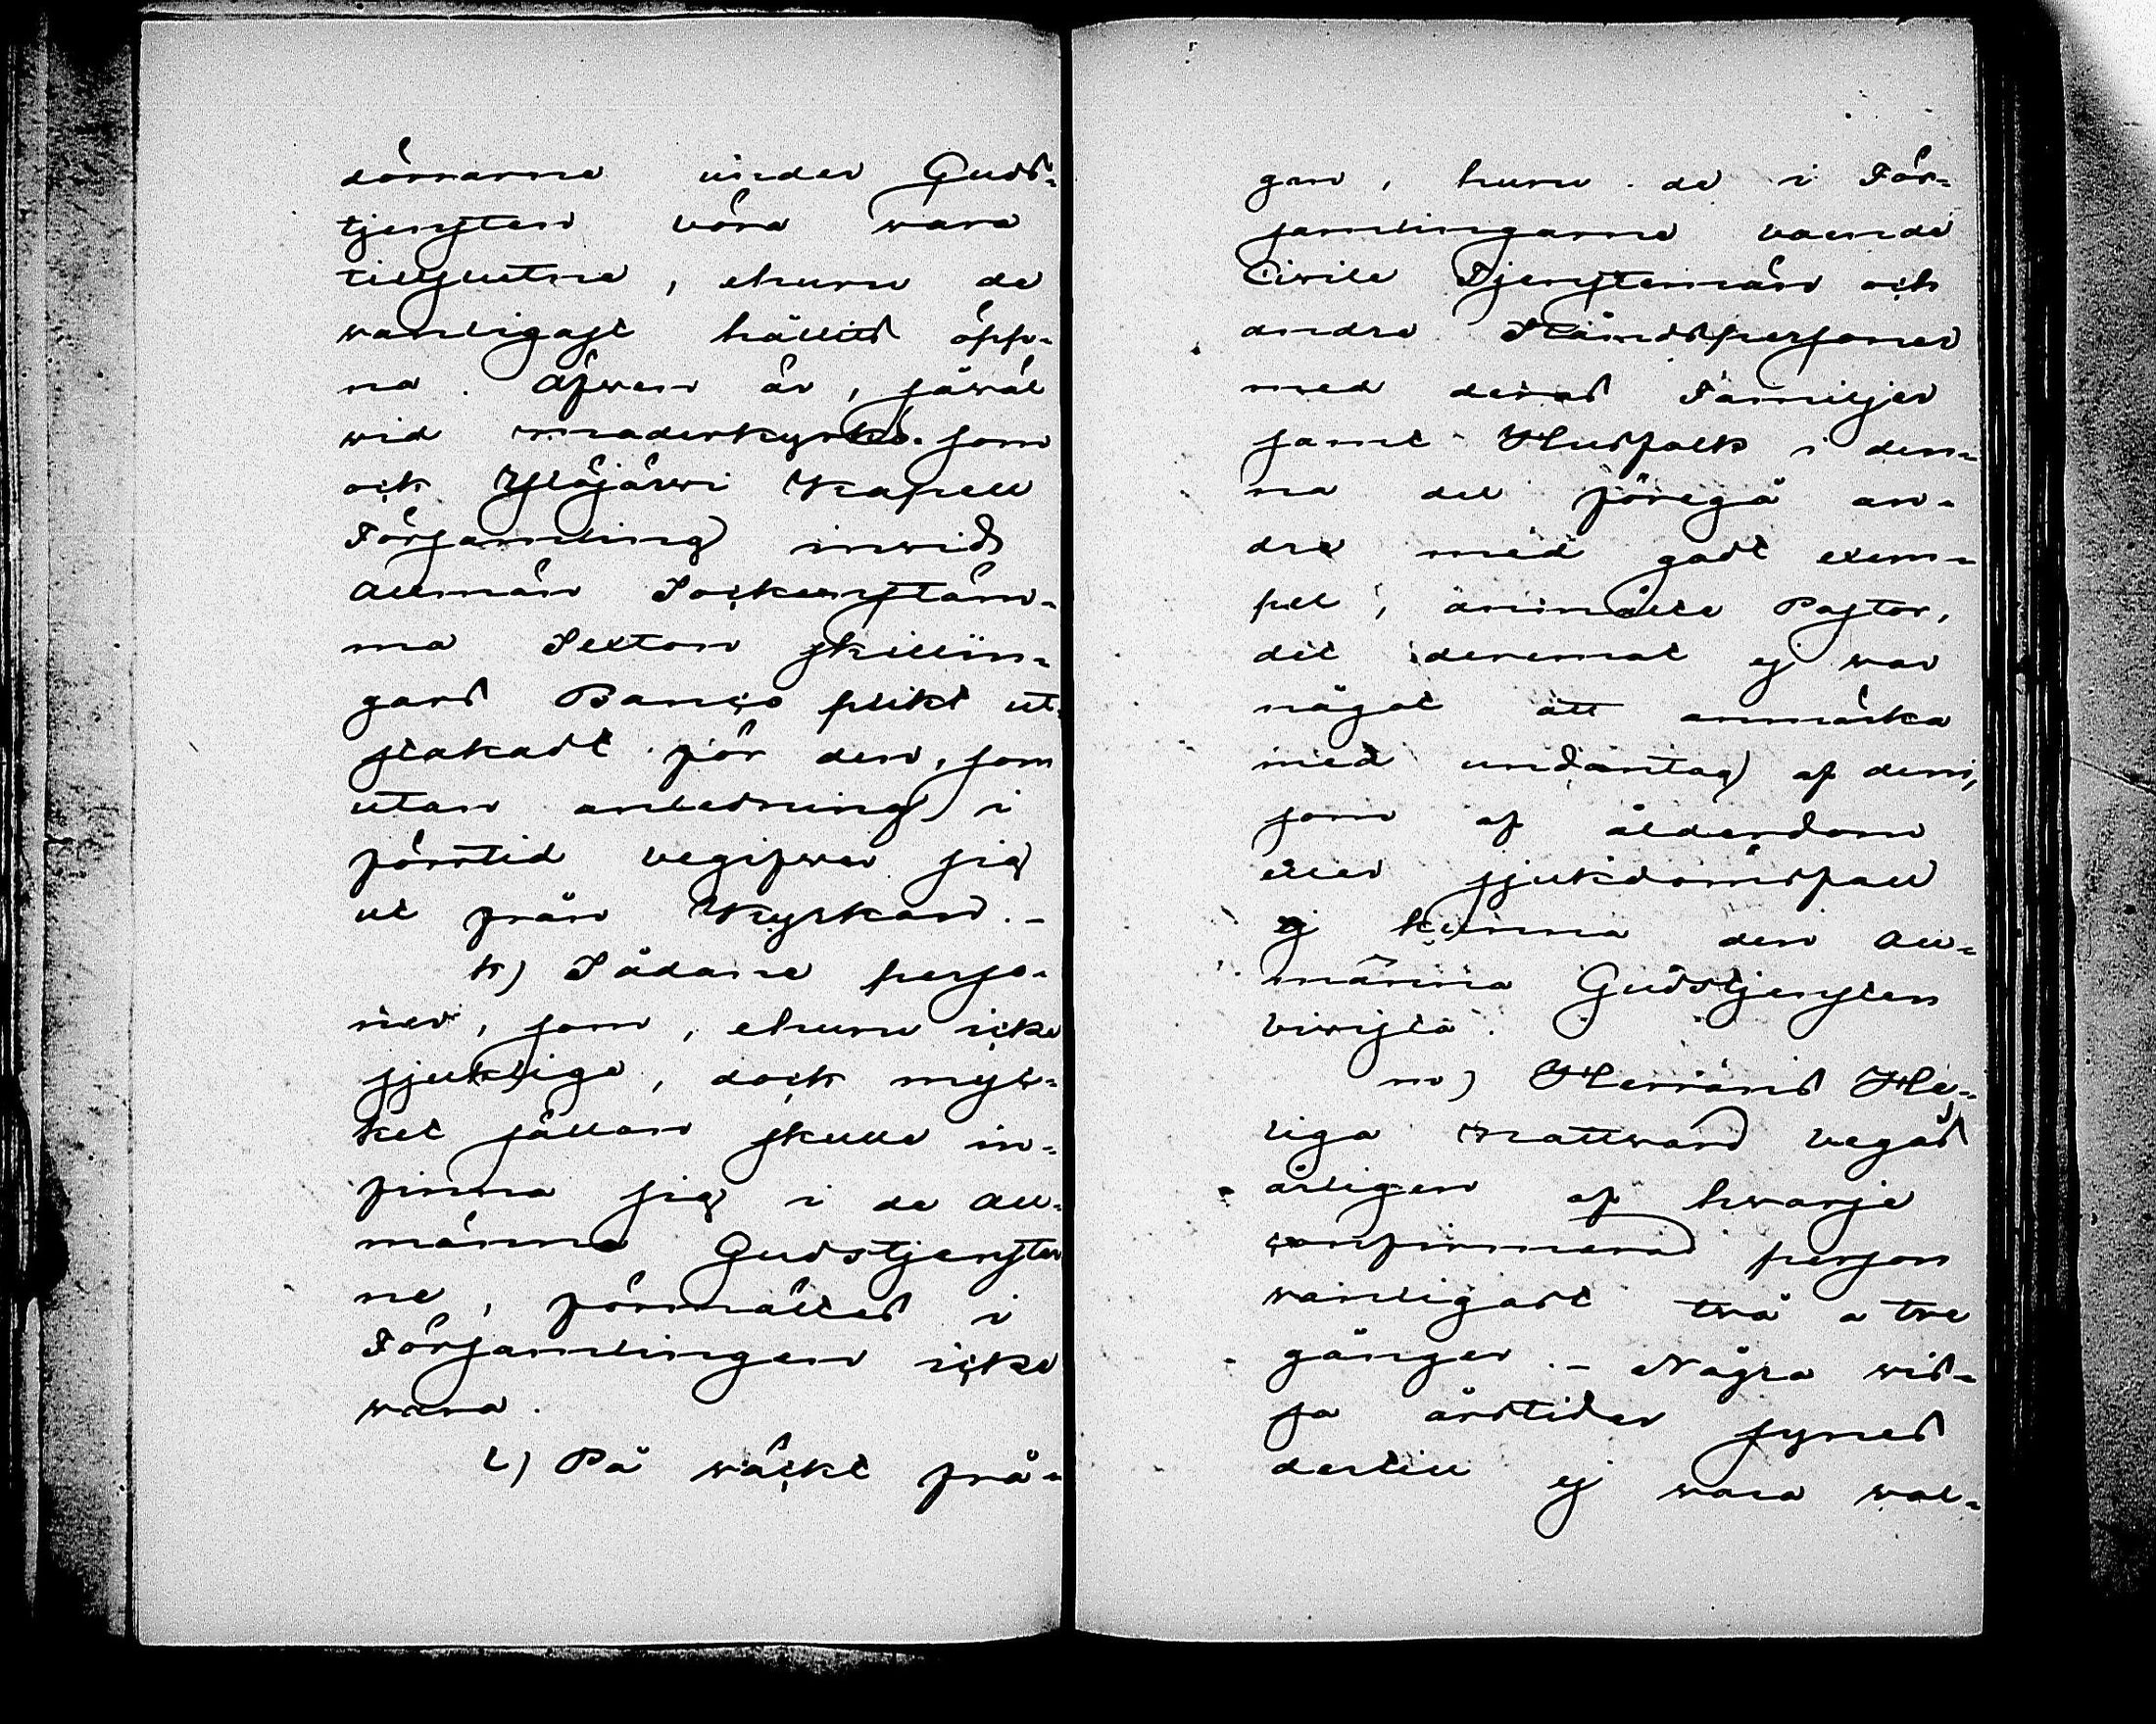 dörrarne under Guds-
tjensten böra wara
tillslutne, ehuru de
wanligast hållits öpp-
na. Äfwen är, såwäl
wid moderkyrko- som
ock Ylöjärwi Kapell
Församling inwid
allmän Sockenstäm-
ma Sexton skillin-
gars Banco plikt ut-
stakadt för den, som
utan anledning i
förrtid begifwer sig
ut från Kyrkan. -
k) Sådane perso-
ner, som, ehuru icke
sjuklige, dock myc-
ket sällan skulle in-
finna sig i de all-
männa Gudstjenster
ne, förmältes i
Församlingen icke
wara.
l) På wäckt frå-
gan, huru de i För-
samlingarne boende
Civile Tjenstemän och
andre Ståndspersoner
med deras Familjer
samt Husfolk i den-
na del föregå an-
dra med godt exem-
pel, anmälte Pastor,
det deremot ej war
något att anmärka
med undantag af dem,
som af ålderdom
eller sjukdomsfall
ej kunna den all-
männa Gudstjensten
biwista.
m) Herrans He-
liga Nattward begås
årligen af hwarje
confirmerad person
wanligast två a tre
gånger. - Några wis-
sa årstider synes
dertill ej wara wal-